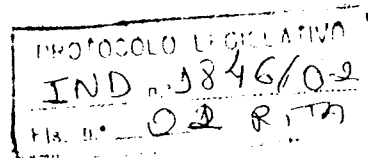 PROTOCOLO LEGISLATIVO
IND n.º 1846/02
Fls. n.º 02 RITA